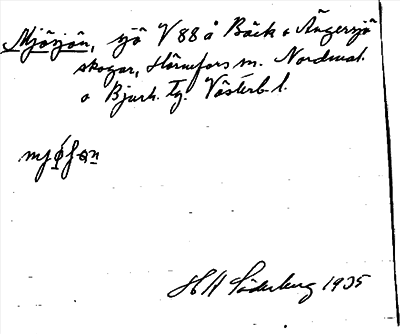 Mjösjön, sjö V 88 å Bäck o Ängersjö
skogar, Hörnefors m. Nordmal.
o Bjurh. tg. Västerb. l.
H A Söderberg 1935